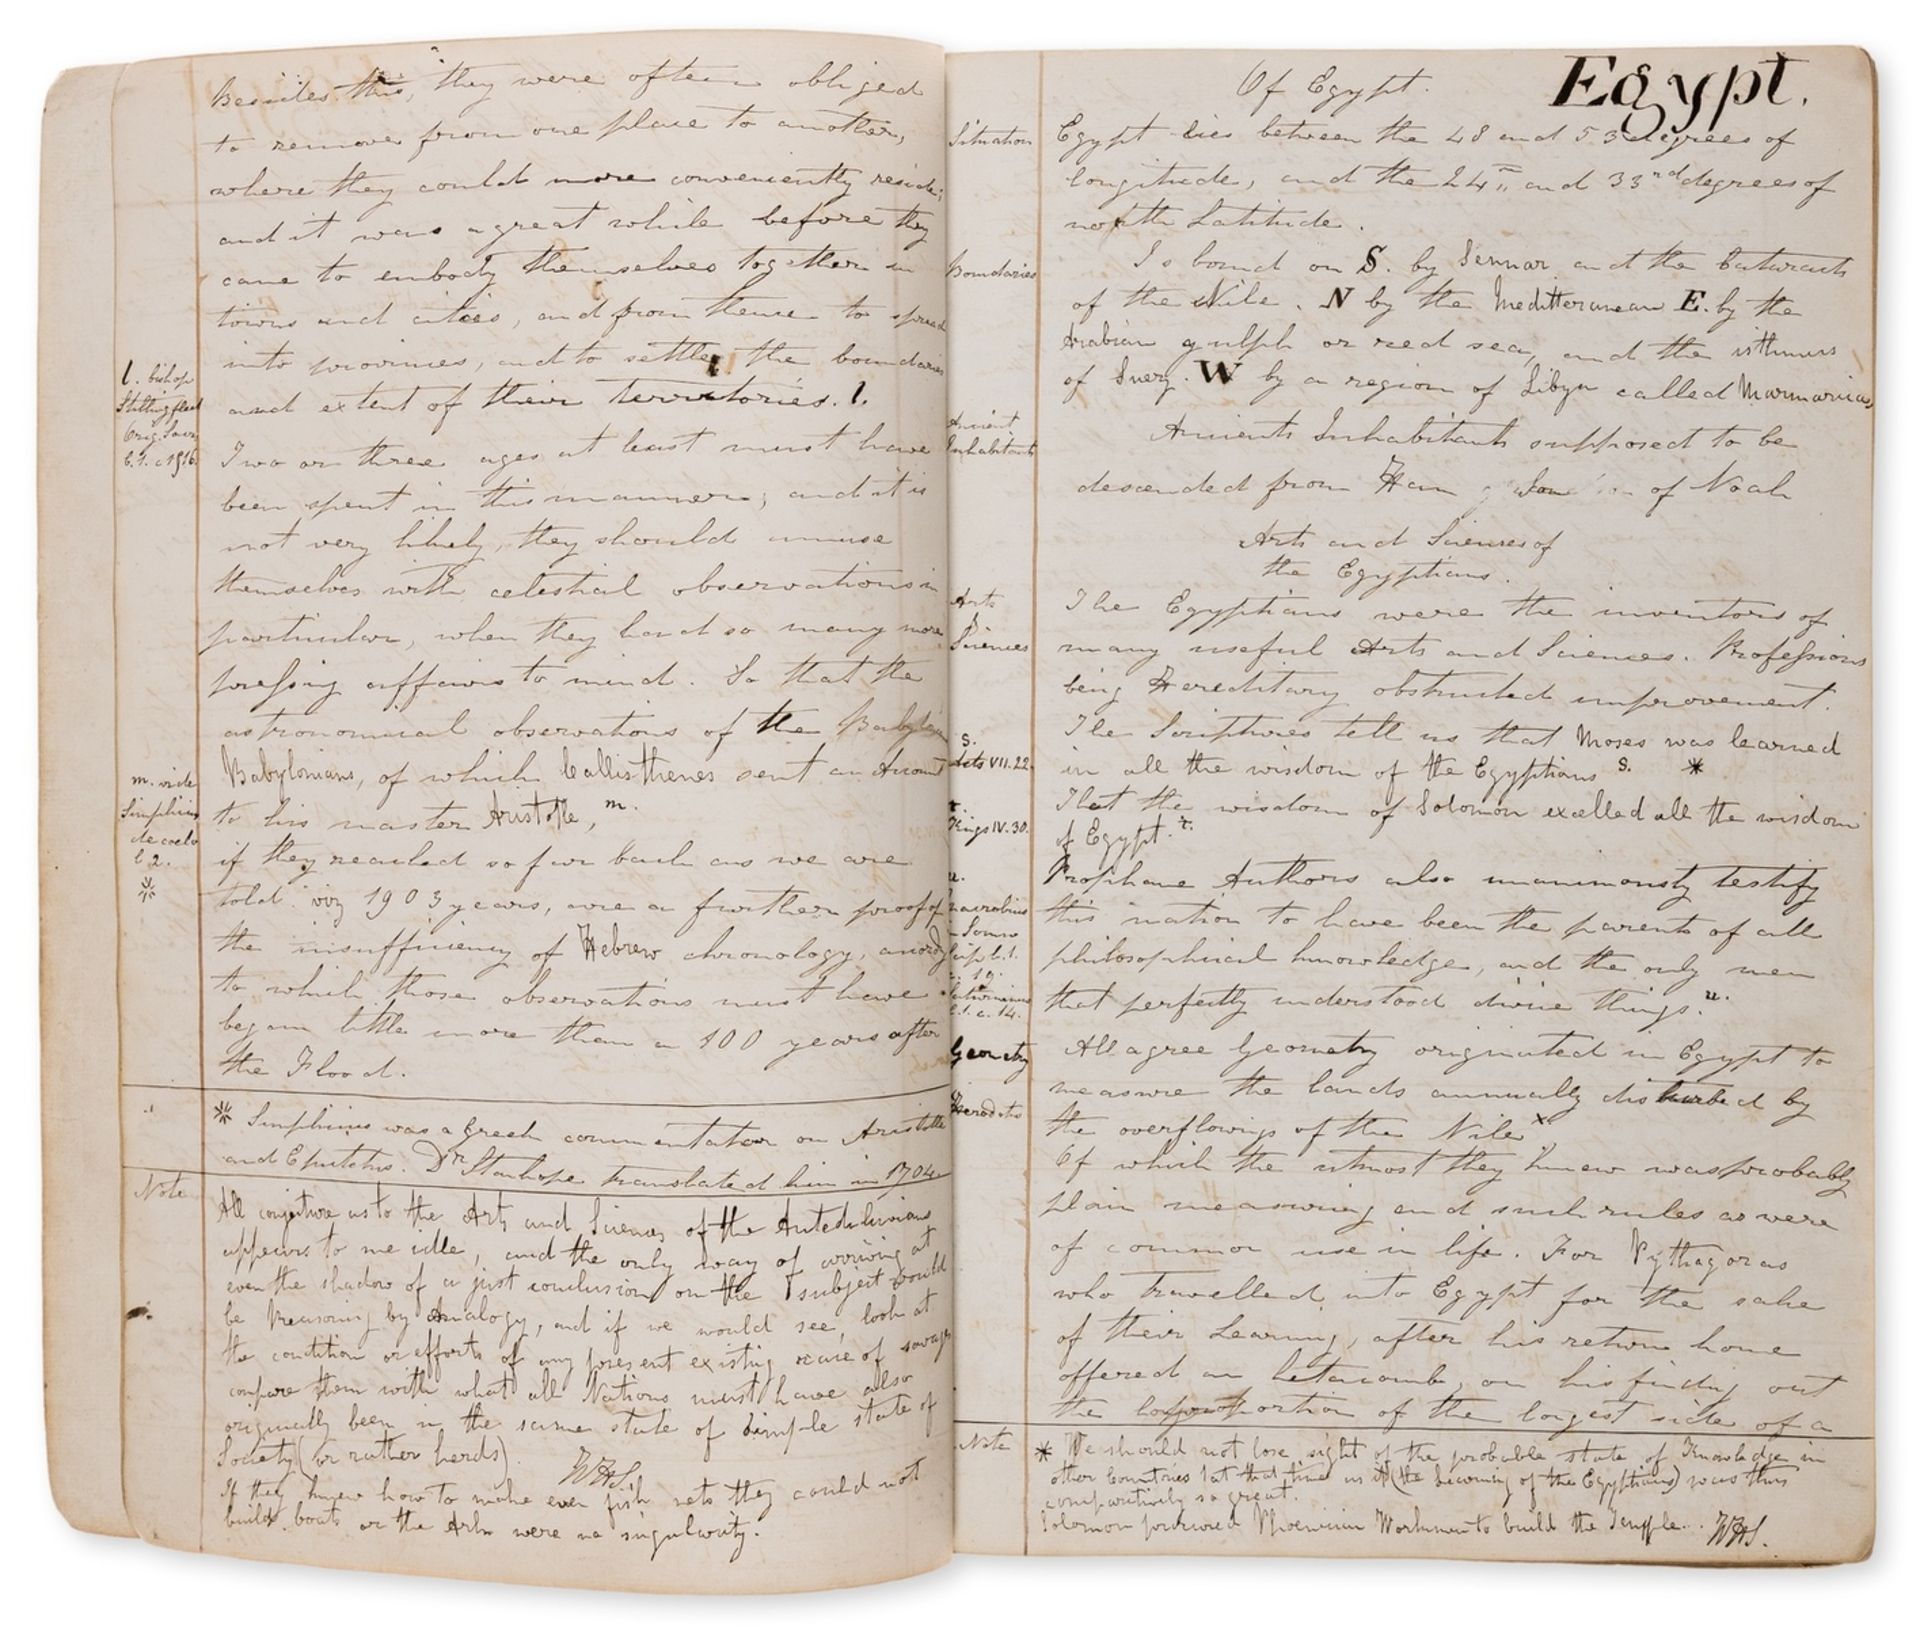 Besides this, they were often obliged
to remove from one place to another,
where they could more conveniently reside;
and it was a great while before they
came to embody themselves together in
towns and cities, and from thence to spread
into provinces, and to settle the boundaries
and extent of their territories. l.
l. bishop
Stillingfleet
Orig. Sacr.
Two or three ages at least must have
been spent in this manner; and it is
not very likely, they should amuse
themselves with celestial observations in
particular, when they had so many more
pressing affairs to mind. So that the
astronomical observations of the
Babylonians, of which Callisthenes sent an Account
to his master Aristotle, m.
m. vide
Simplicius
de coelo
l 2.
*
if they reached so far back as we are
told viz 1903 years, are a further proof of
the insufficiency of Hebrew chronology, accordg
to which those observations must have
began little more than a 100 years after
the Flood.
* Simplicius was a Greek commentator on Aristotle
and Epictetus. Dr Stanhope translated him in 1704
Note
All conjecture as to the Arts and Sciences of the Antediluvians
appears to me idle, and the only way of arriving at
even the shadow of a just conclusion on the subject would
be Reasoning by Analogy, and if we would see, look at
the condition or efforts of any present existing race of savages
compare them with what all Nations must have also
originally been in the same state of simple state of
Society (or rather herds).
WHS.
If they knew how to make even fish nets they could not
build boats or the Ark were no singularity.
Egypt.
Of Egypt.
Situation
Egypt lies between the 48 and 53 degrees of
longitude, and the 24th and 33rd degrees of
north Latitude.
Boundaries
Is bound on S. by Sennar and the Cataracts
of the Nile. N by the Meditteranean E. by the
Arabian gulph or red sea, and the isthmus
of Suez. W by a region of Libya called Marmarica,
Ancient
Inhabitants
Ancients Inhabitants supposed to be
descended from Ham son of Noah
Arts and Sciences of
the Egyptians.
Arts
&
Sciences
The Egyptians were the inventors of
many useful Arts and Sciences. Professions
being Hereditary obstructed improvement.
The Scriptures tell us that Moses was learned
in all the wisdom of the Egyptians s. *
s.
Acts VII. 22.
That the wisdom of Solomon excelled all the wisdom
of Egypt. t.
t.
Kings IV. 30.
Prophane Authors also unanimously testify
this nation to have been the parents of all
philosophical knowledge, and the only men
that perfectly understood divine things. u.
u.
Macrobius
Somn
Scip l. 1.
c. 19.
l. 1. c. 14.
Geometry
All agree Geometry originated in Egypt to
measure the lands annually disturbed by
the overflowings of the Nile x.
Herodotus
Of which the utmost they knew was probably
plain measuring and such rules as were
of common use in life. For Pythagoras
who travelled into Egypt for the sake
of their Learning, after his return home
offered an hetacomb, on his finding out
the proportion of the longest side of a
Note
* We should not lose sight of the probable state of Knowledge in
other Countries at that time as it (the learning of the Egyptians) was thus
comparitively so great.
Solomon procured Phoenician Workmen to build the Temple.. WHS.